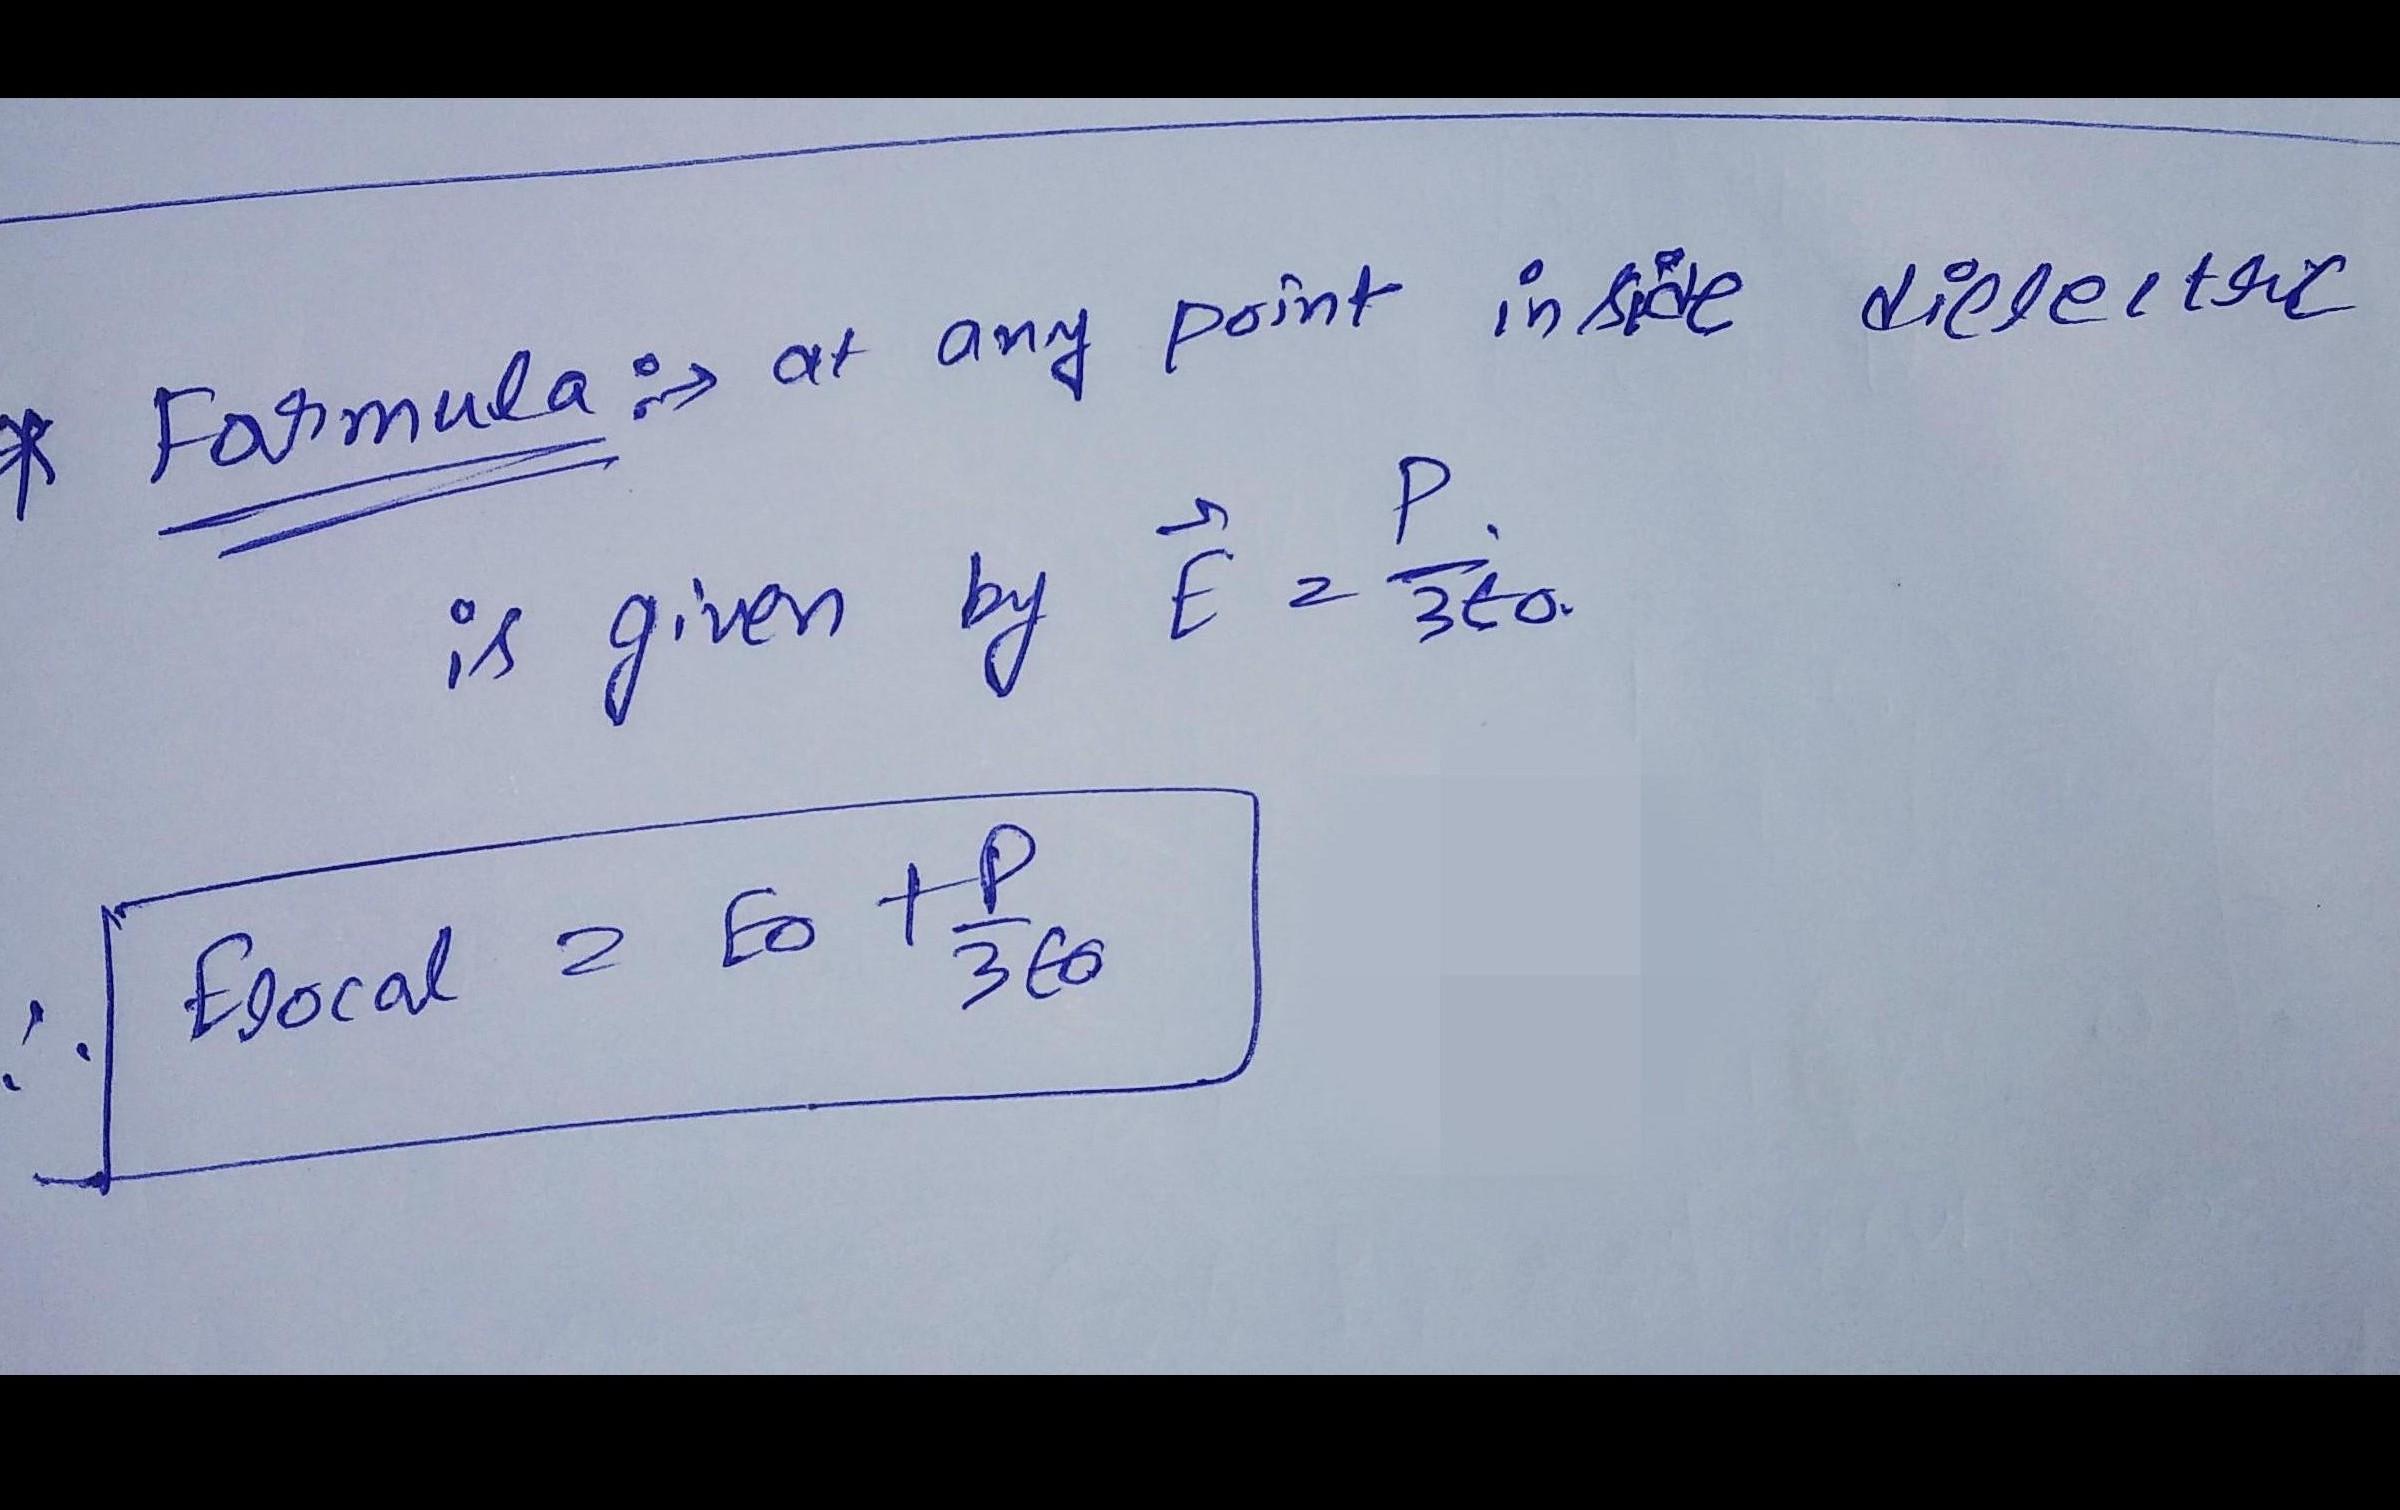 * Formula :→ at any point inside dielectric
is given by E⃗ = P/3ε0.
∴ Elocal = E0 + P/3ε0